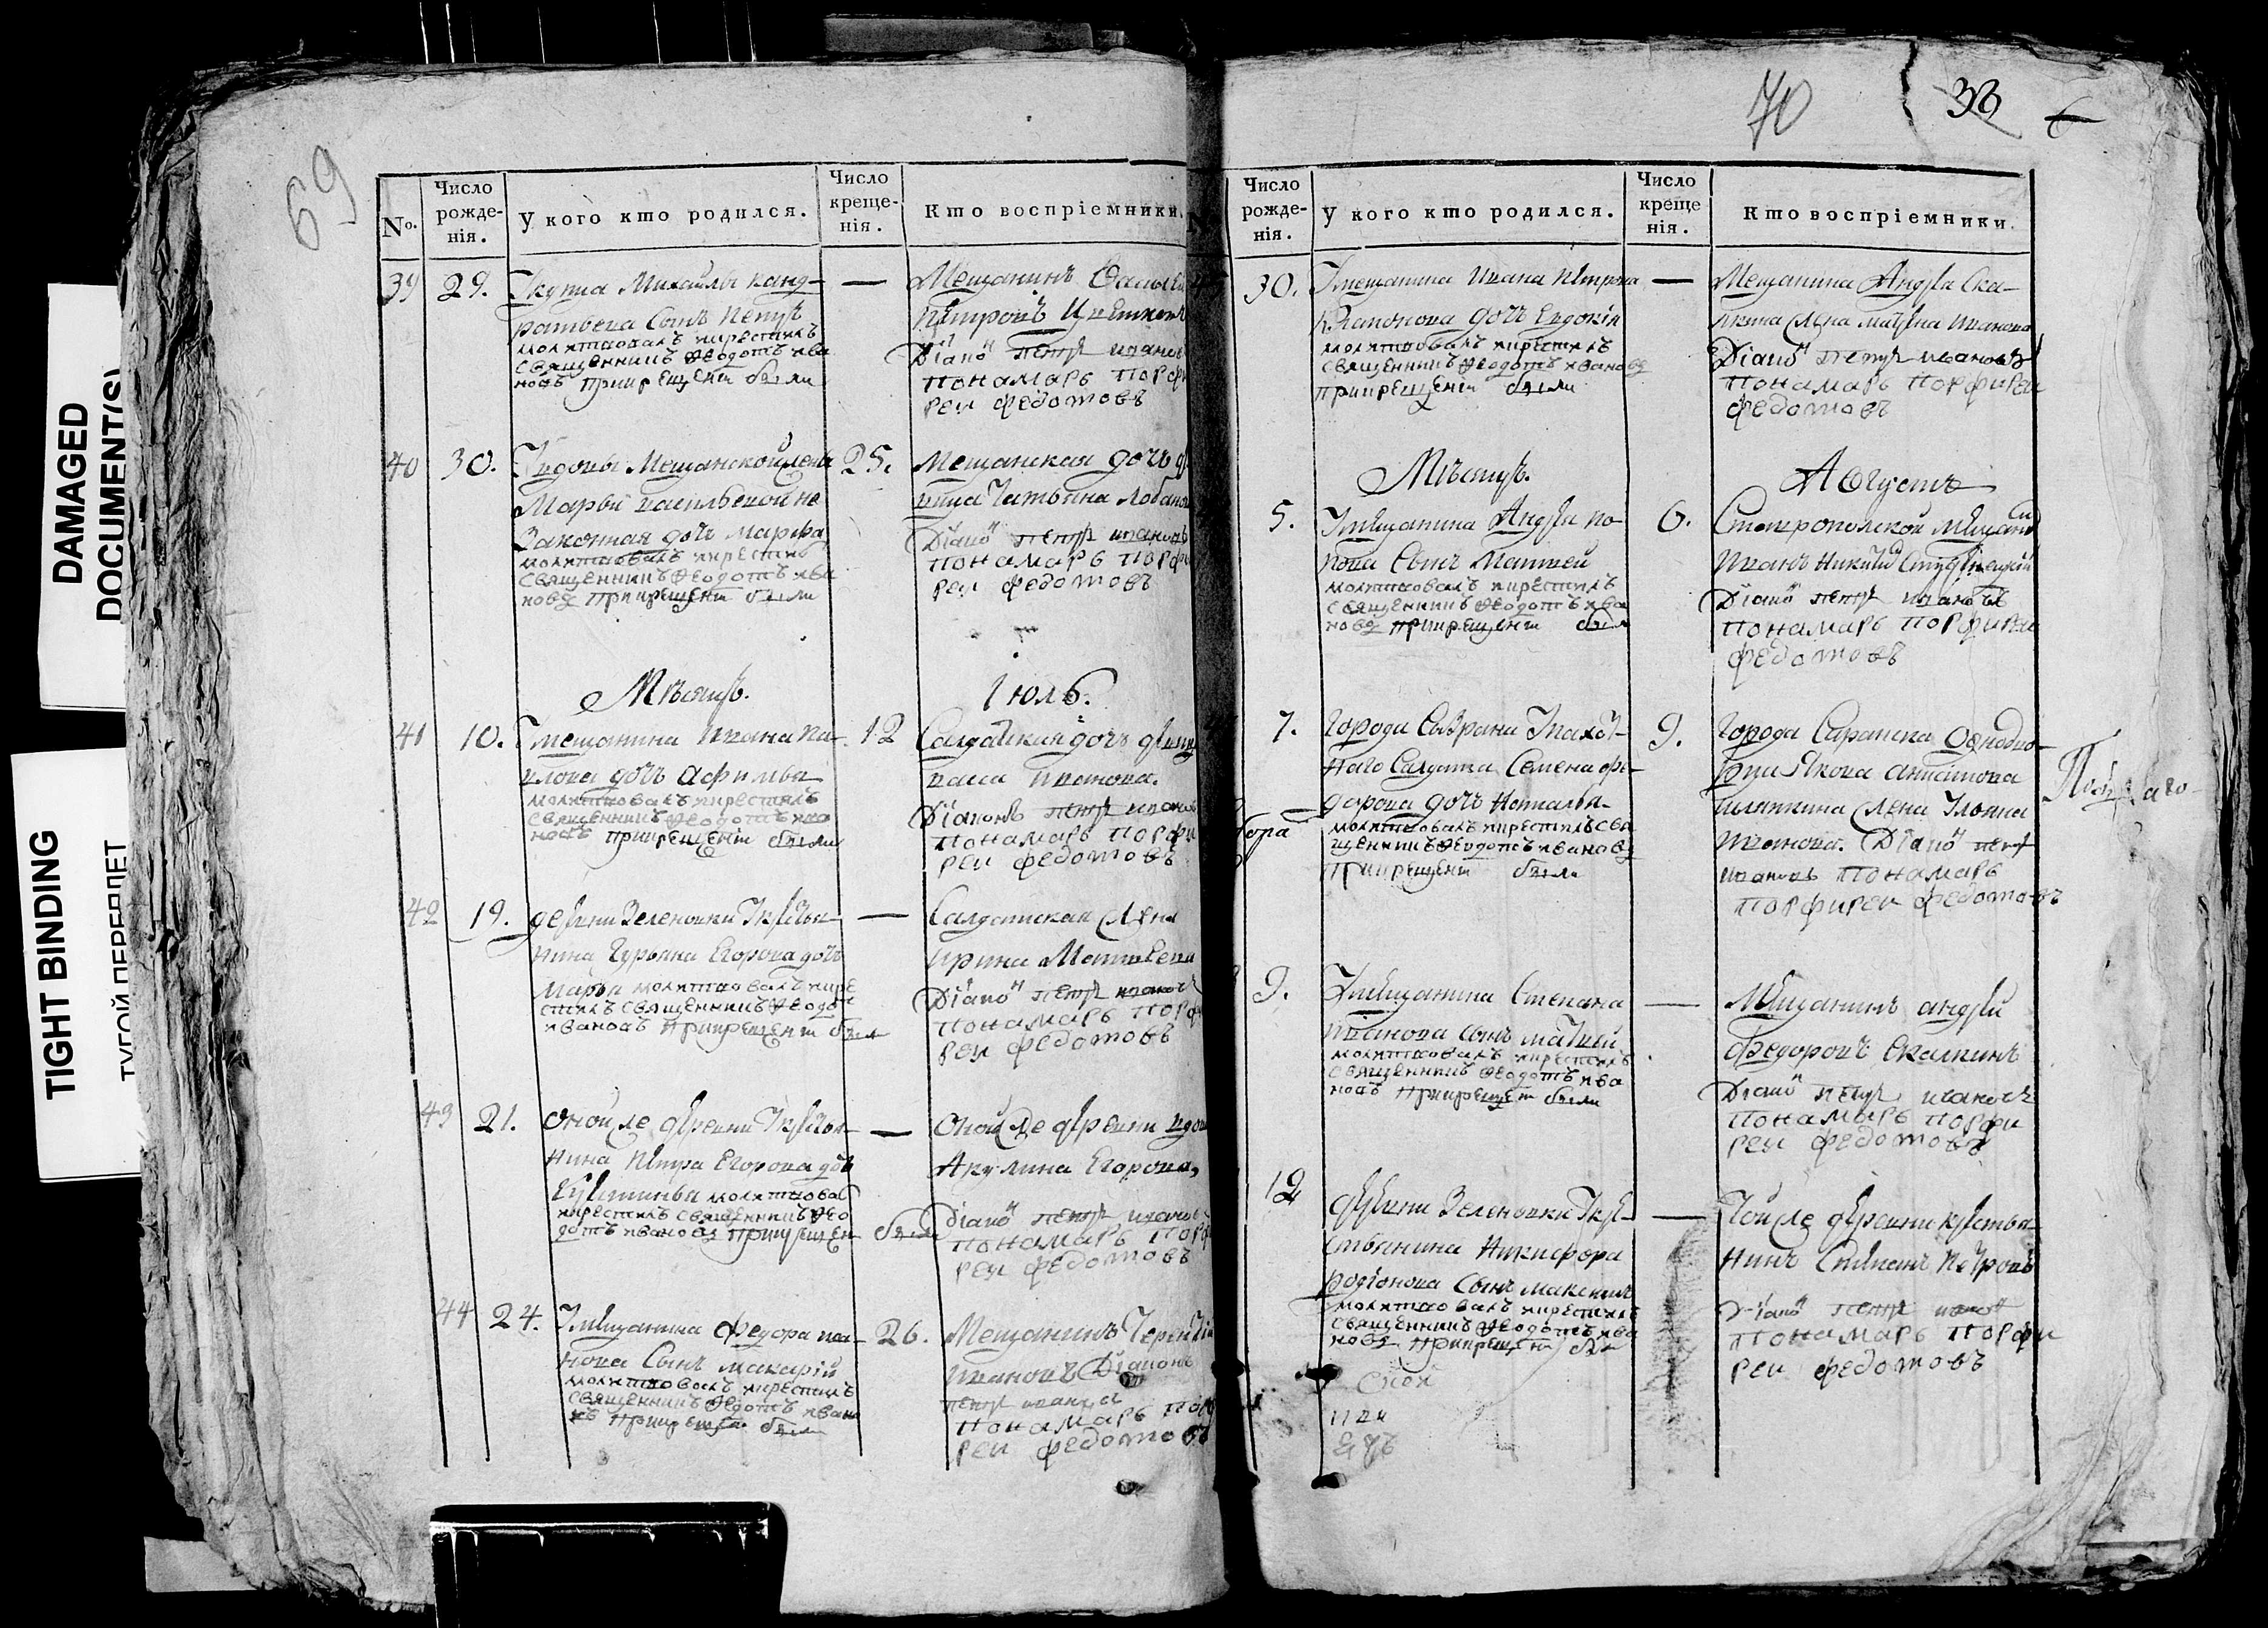 DAMAGED
DOCUMENT(S)
TIGHT BINDING
ТУГОЙ ПЕРЕПЛЕТ
69
No.
Число рожденія.
У кого кто родился.
Число крещенія.
Кто воспріемники.
39 29. У купца Михайлы Канд-
ратьева Сынъ Петръ
молитвовалъ икрестилъ
священникъ Ѳеодотъ ива
новъ прикрещенiи были
—
Мещанинъ Василеи
Петровъ
Дiако н петръ ивановъ
пономарь порфи
реи федотовъ
40 30. У вдовы Мещанской жены
Марьи Васильевой не
Законная дочь Марфа
молитвовалъ икрестилъ
священникъ Ѳеодотъ ива
новъ прикрещенiи были
25.
Мещанская дочь
вица Татьяна Лобанов
Дiако н петръ ивановъ
понамарь порфи
реи федотовъ
Мѣсяцъ. Iюль.
41 10. У мещанина Ивана Па-
влова дочь Афимья
молитвовалъ икрестилъ
священникъ Ѳеодотъ ива
новъ прикрещенiи были
12
Салдатская дочь
Иванова.
Дiаконъ петръ ивановъ
понамарь порфи
реи федотовъ
42 19. деревни Зеленовки У кресья-
нина Гурьяна Егорова дочь
Марья молитвовалъ икре
стилъ священникъ Ѳеодо
ивановъ прикрещенiи были
—
Салдатская жена
Ирина Матвеева
Дiако н петръ ивановъ
понамарь порф
реи федотовъ
43 21. Оной же деревни У кресья-
нина Петра Егорова дочь
молитвовал
икрестилъ священникъ Ѳео
дотъ ивановъ прикрещен были
—
Оной же деревни вдова
Акулина Егорова,
Дiако н петръ ивановъ
понамарь порф
реи федотовъ
44 24. У мещанина Федора
нова Сынъ Макарiй
молитвовалъ икрестилъ
священникъ Ѳедотъ ивано
въ прикрещен были
26.
Мещанинъ Терентiи
Ивановъ Дiаконъ
петръ ивановъ
понамарь пор
реи федотовъ
70 33
Число рожденія.
У кого кто родился.
Число креще нія.
Кто воспріемники.
30. У мещанина Ивана Петрова
дочь Евдокiя
молитвовалъ икрестилъ
священникъ Ѳеодотъ ивановъ
прикрещенiи были
—
Мещанина Андрея Ска-
лкина жена Матрена Иванова
Дiако н петръ ивановъ
понамарь порфиреи
федотовъ
Мѣсяцъ. Августъ
5. У мещанина Андрея По-
пова Сынъ Матвей
молитвовалъ икрестилъ
священникъ Ѳеодотъ ива
новъ прикрещенiи были
6.
Ставропольской Мещани
Иванъ Никитин
Дiако н петръ ивановъ
понамарь порфиреи
федотовъ
7. Города Сызрани У
наго Салдата Семена Фе-
дорова дочь Наталья
молитвовалъ икрестилъ свя
щенникъ Ѳеодотъ ивановъ
прикрещенiи были
9.
Города Саранска Однодво-
рца Якова Антипова
жена Ульяна
Иванова. Дiако н петръ
ивановъ понамарь
порфиреи федотовъ
9. У мещанина Степана
Иванова сынъ Матвей
молитвовалъ икрестилъ
священникъ Ѳеодотъ ива
новъ прикрещен были
—
Мещанинъ Андрей
Федоровъ Скалкинъ
Дiако н петръ ивановъ
понамарь порфи
реи федотовъ
12 деревни Зеленовки У кре-
стьянина Никифора
Родiонова Сынъ Максимъ
молитвовалъ икрестилъ
священникъ Ѳеодотъ ива
новъ прикрещен были
—
Той же деревни крестья-
нинъ Степанъ Петровъ
Дiако н петръ ивано
понамарь порфи
реи федотовъ